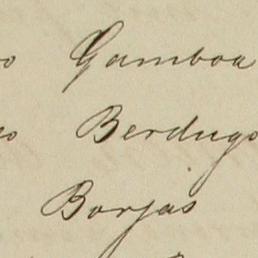 o Gamboa
o Berdugo
Borjas